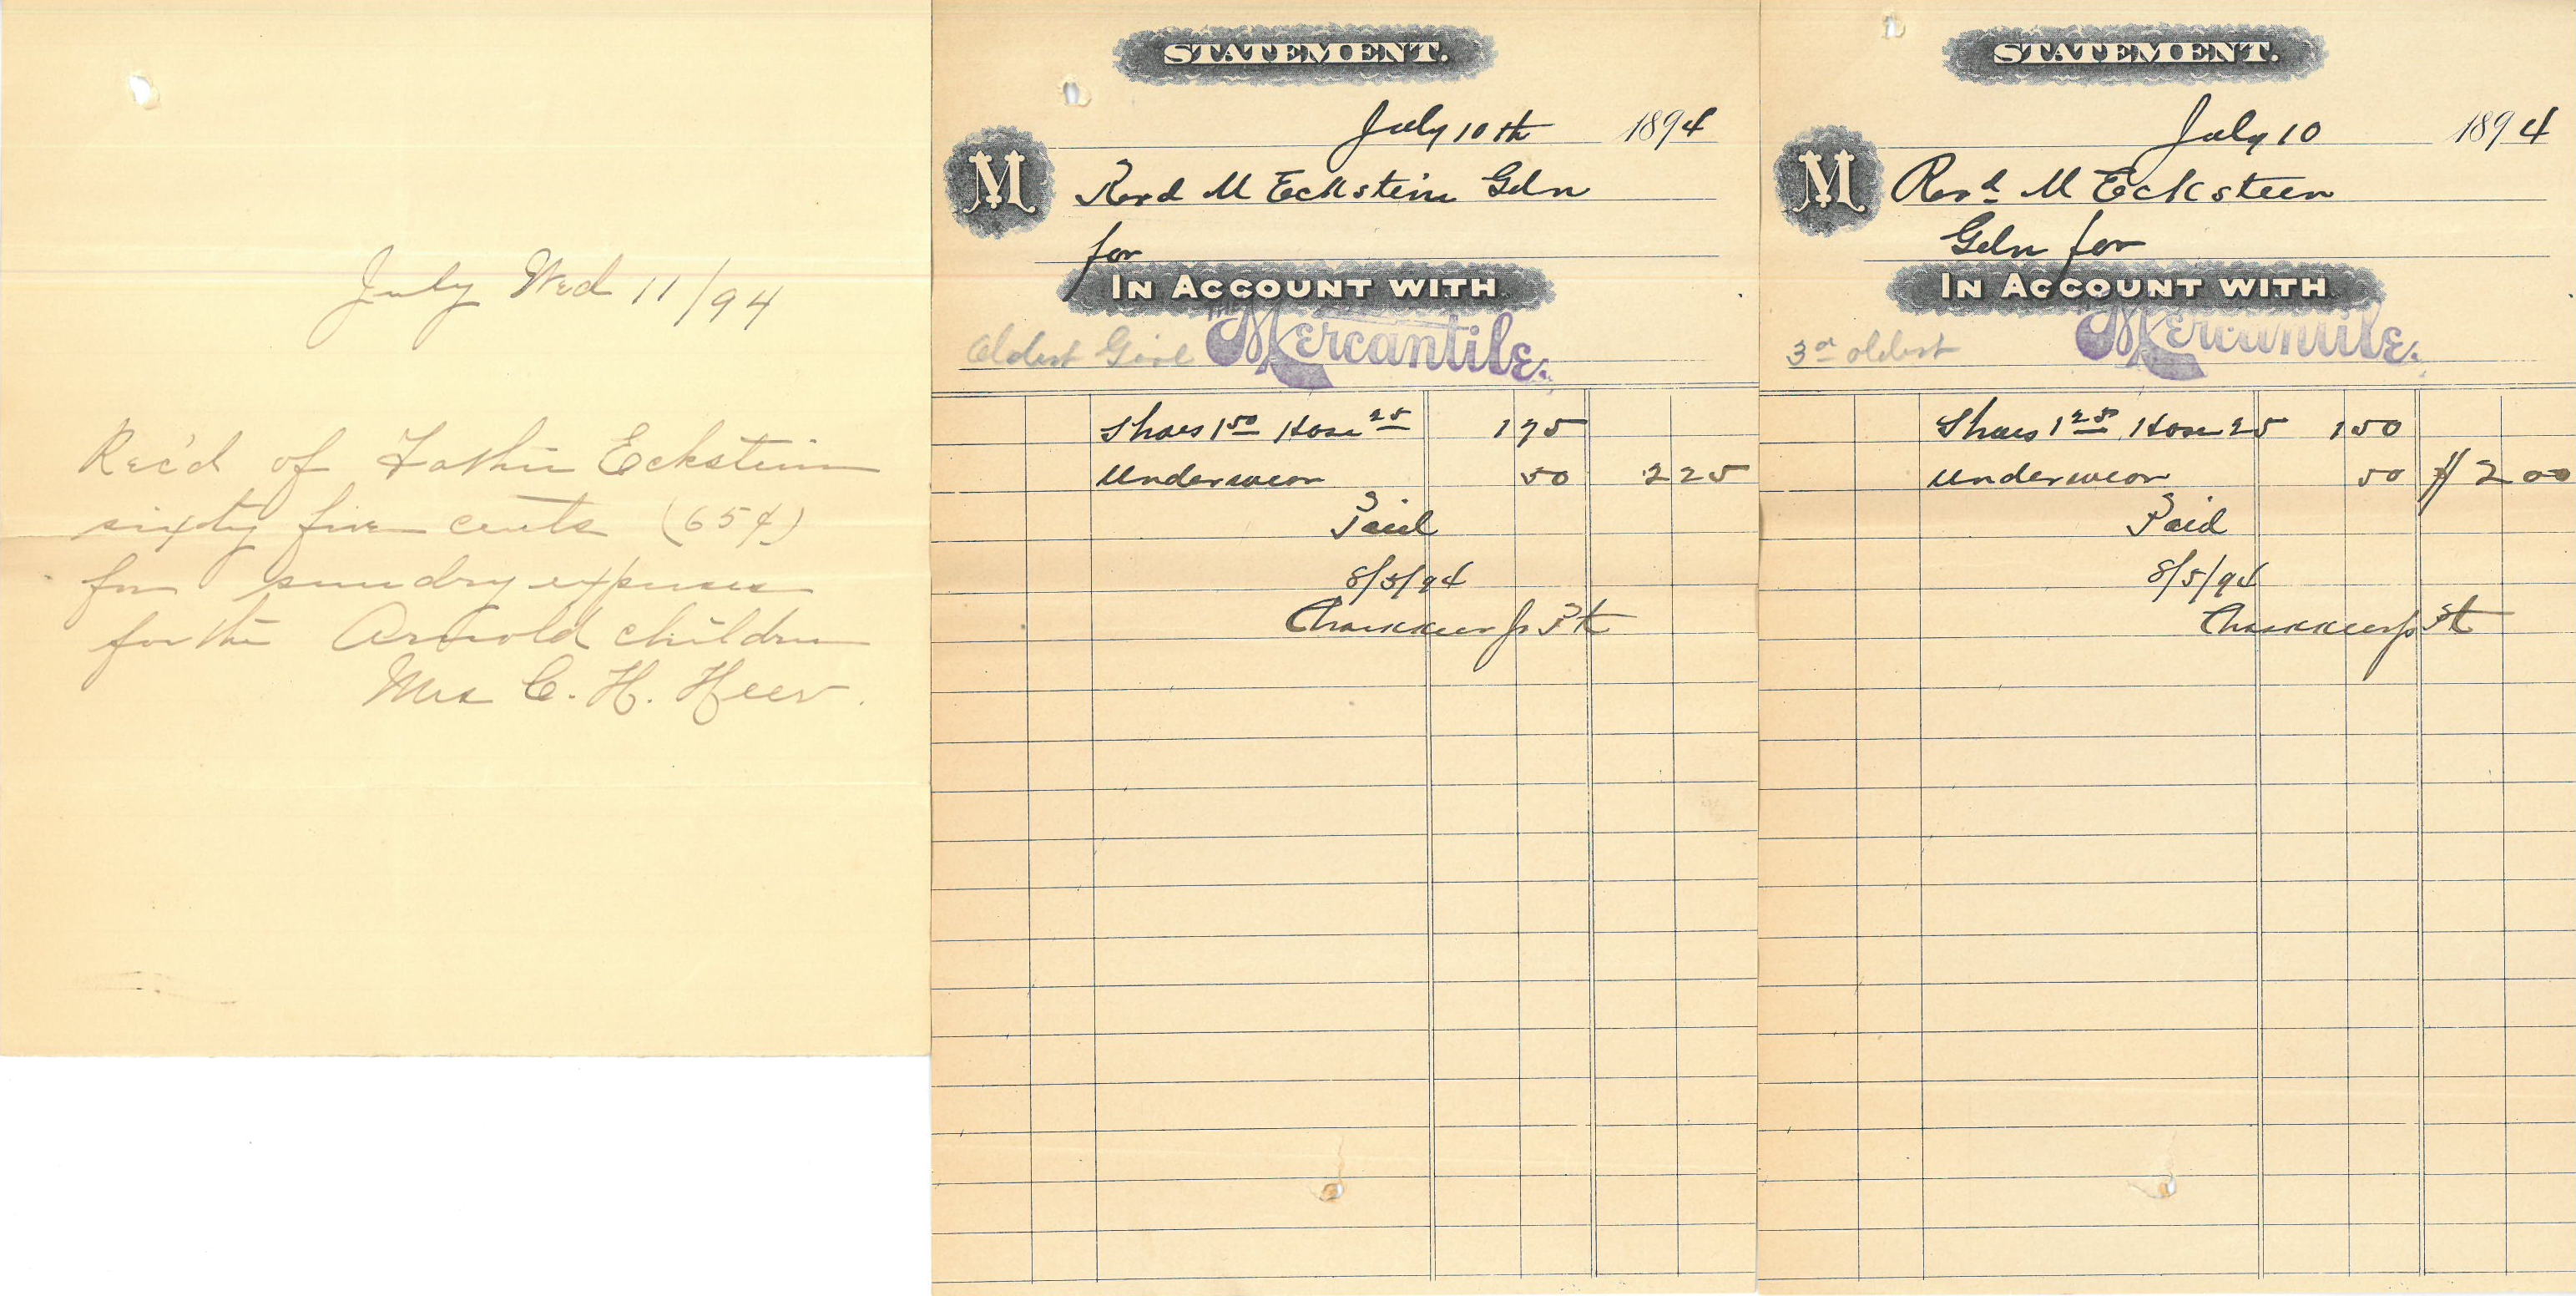 July Wed 11/94
Rec'd of Father Eckstein
sixty five cents (65¢)
for sundry expenses
for the Arnold children
Mrs C. H. Heer.
STATEMENT.
July 10th 1894
M
Revd M Eckstein Gdn
for
IN ACCOUNT WITH
The
Oldest Girl Mercantile.
Shoes 1 50 Hose 25 1 75
Underwear 50 2 25
Paid
8/5/94
STATEMENT.
July 10 1894
M
Revd M Ecksteen
Gdn for
IN ACCOUNT WITH
3d oldest Mercantile.
Shoes 1 25 Hose 25 1 50
Underwear 50 $ 2 00
Paid
8/5/94